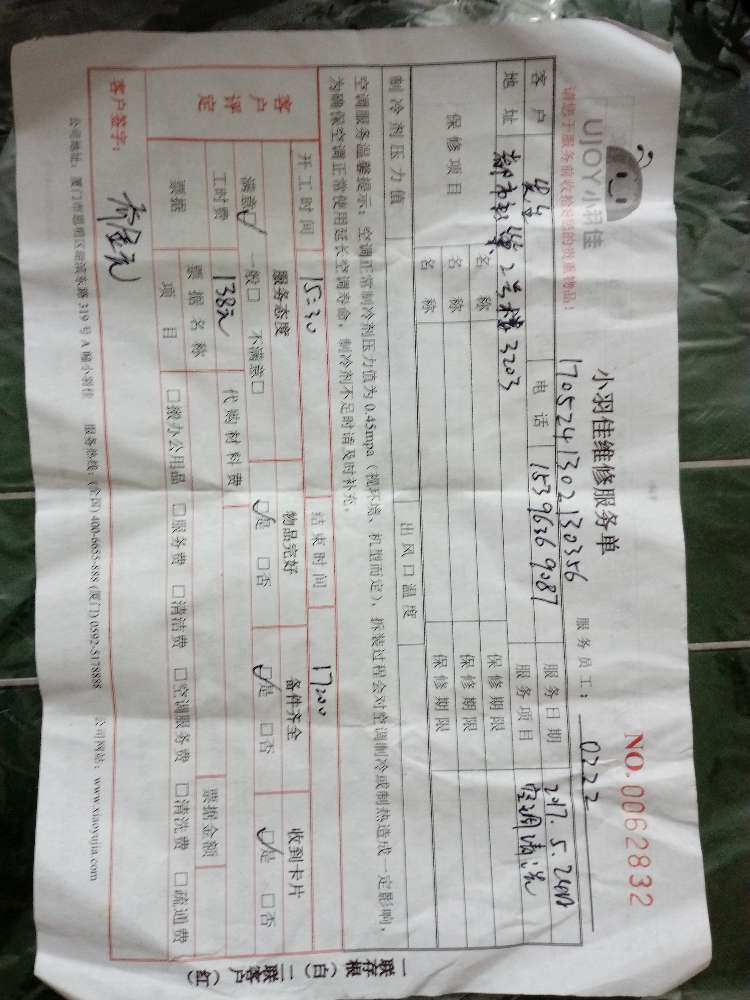 UJOY小羽佳
小羽佳维修服务单
NO.0062832
请妥善于服务前收拾好您的贵重物品!
1705241302130356
服务员工: 0222
客户
电话 15396369087
服务日期 2017.5.24
地址 2号楼3203
服务项目 空调清洗
保修项目
名称
保修期限
名称
保修期限
名称
保修期限
制冷剂压力值
出风口温度
空调服务温馨提示:空调正常制冷剂压力值为0.45mpa(视环境、机型而定),拆装过程会对空调制冷或制热造成一定影响,
为确保空调正常使用延长空调寿命,制冷剂不足时请及时补充。
客户评定
开工时间 15:30
结束时间 17:00
服务态度
物品完好
备件齐全
收到卡片
满意☑ 一般□ 不满意□
☑是 □否
☑是 □否
☑是 □否
工时费 138元
代购材料费
票据
票据名称
票据金额
项目
□搬办公用品 □服务费 □清洁费 □空调服务费 □清洗费 □疏通费
客户签字:
公司地址:厦门市思明区 319号A幢小羽佳 服务热线:(全国)400-6655-888 (厦门)0592-5178888 公司网站:www.xiaoyujia.com
一联存根(白)二联客户(红)